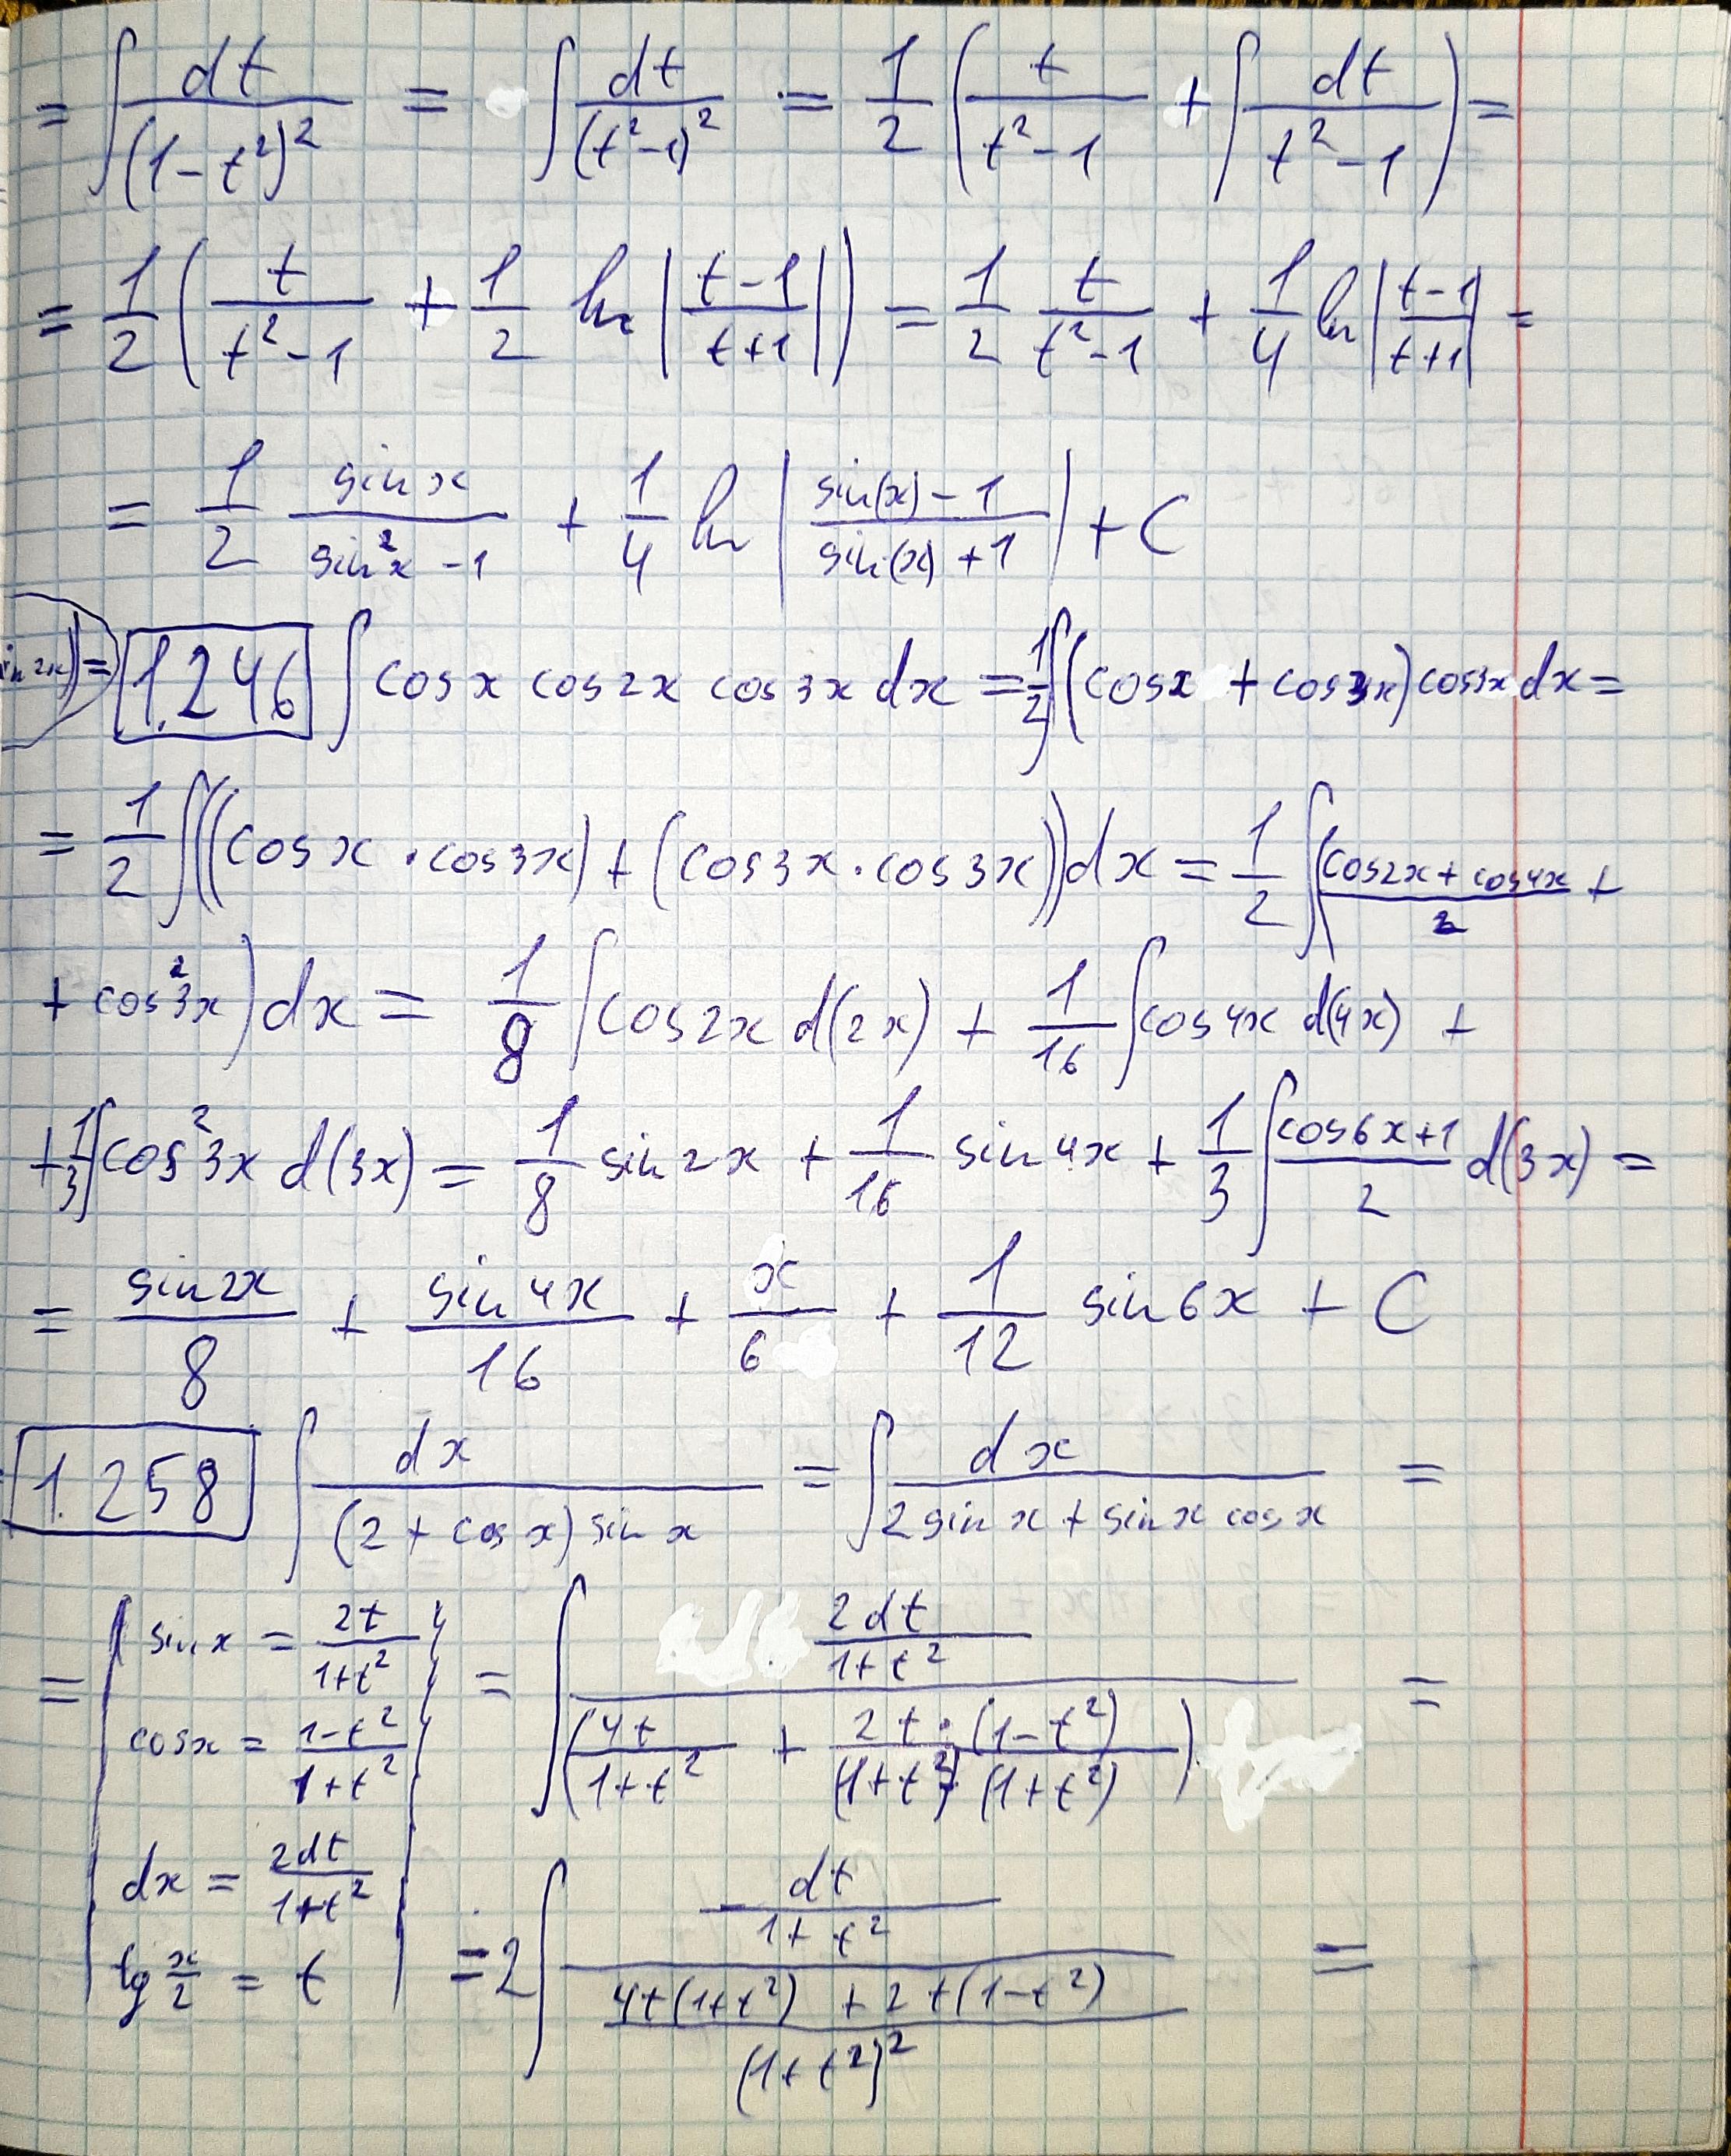 = ∫ dt/(1-t²)² = ∫ dt/(t²-1)² = 1/2 (t/(t²-1) + ∫ dt/(t²-1)) =
= 1/2 (t/(t²-1) + 1/2 ln |(t-1)/(t+1)|) = 1/2 t/(t²-1) + 1/4 ln |(t-1)/(t+1)| =
= 1/2 sin x/(sin²x - 1) + 1/4 ln |(sin(x) - 1)/(sin(x) + 1)| + C
in 2x)) = 1.246 ∫ cos x cos 2x cos 3x dx = 1/2 ∫ (cos x + cos 3x) cos 3x dx =
= 1/2 ∫ ((cos x · cos 3x) + (cos 3x · cos 3x)) dx = 1/2 ∫ ((cos 2x + cos 4x)/2 +
+ cos² 3x) dx = 1/8 ∫ cos 2x d(2x) + 1/16 ∫ cos 4x d(4x) +
+ 1/3 ∫ cos² 3x d(3x) = 1/8 sin 2x + 1/16 sin 4x + 1/3 ∫ (cos 6x + 1)/2 d(3x) =
= sin 2x/8 + sin 4x/16 + x/6 + 1/12 sin 6x + C
1.258 ∫ dx/((2 + cos x) sin x) = ∫ dx/(2 sin x + sin x cos x) =
= | sin x = 2t/(1+t²) | = ∫ (2dt/(1+t²))/(4t/(1+t²) + (2t · (1-t²))/((1+t²) · (1+t²))) =
cos x = (1-t²)/(1+t²)
dx = 2dt/(1+t²)
tg x/2 = t = 2 ∫ (dt/(1+t²))/((4t(1+t²) + 2t(1-t²))/(1+t²)²) =